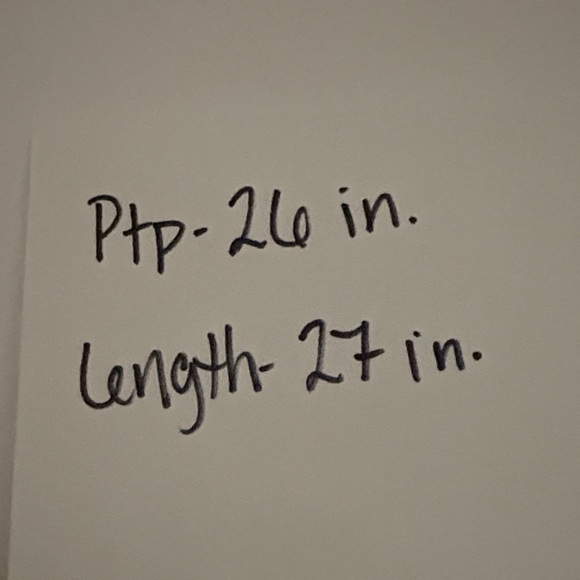 Ptp- 26 in.
length- 27 in.